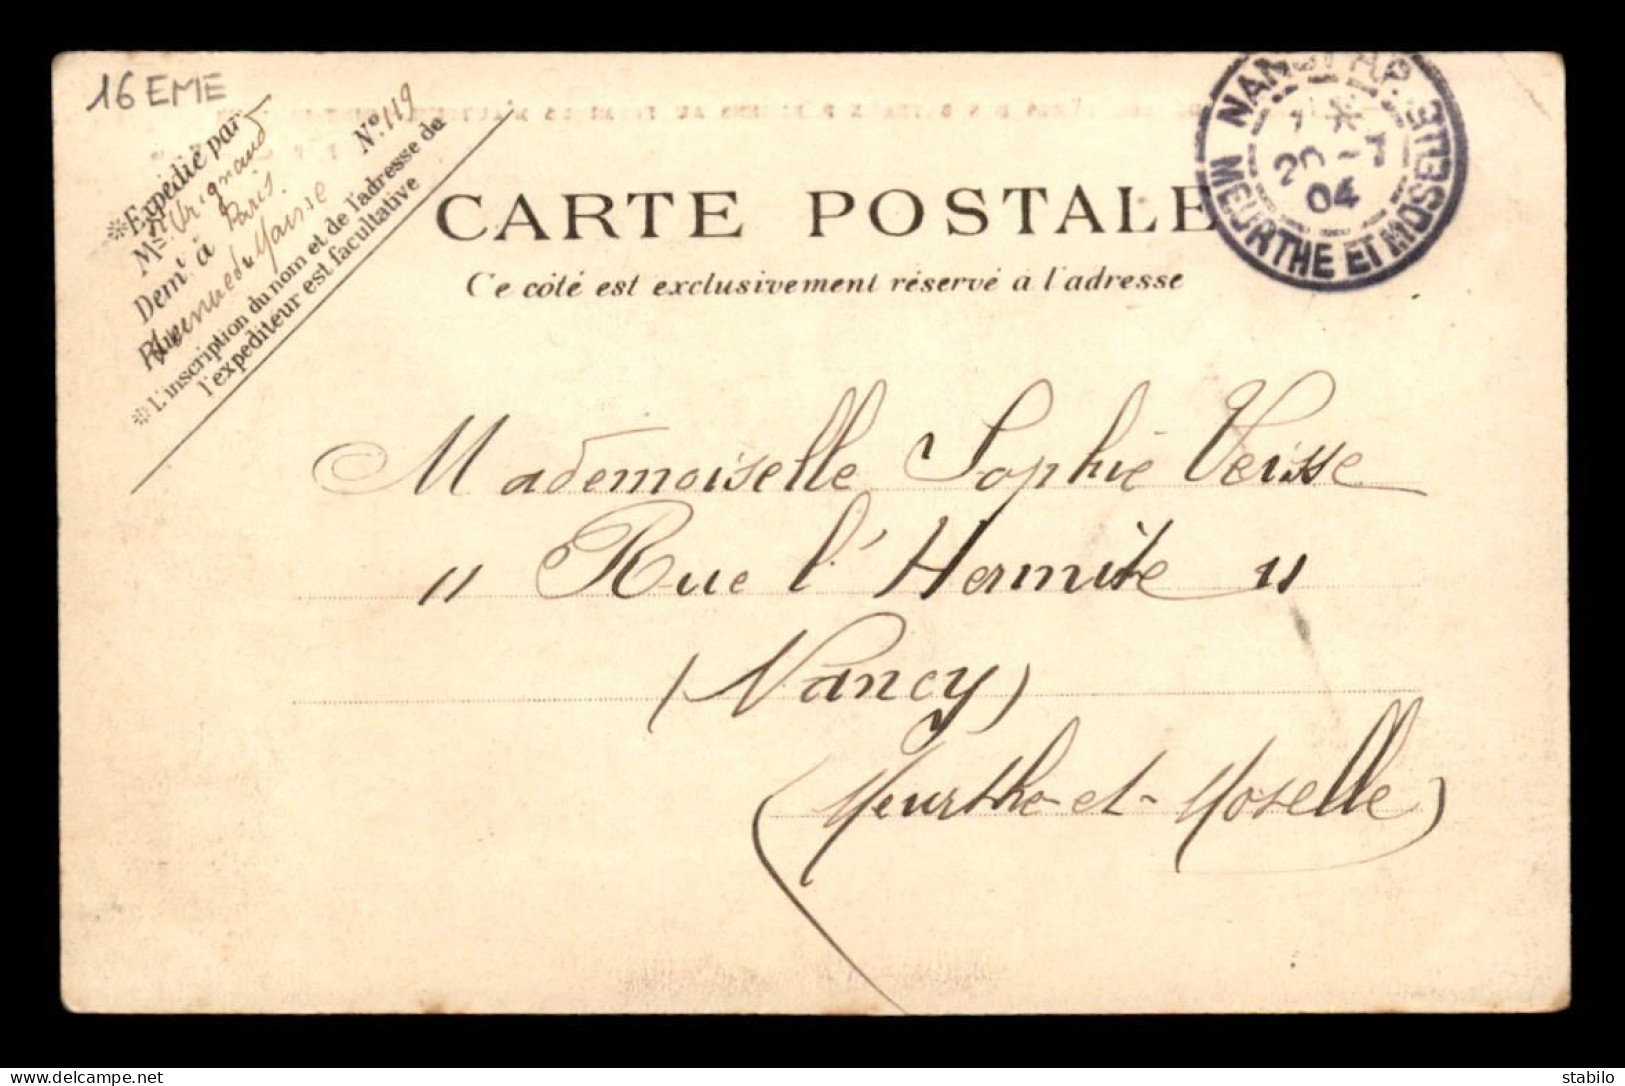 16 EME
Expédié par
Mr
Demt à Paris.
Rue Avenue du Maine No. 119
L'inscription du nom et de l'adresse de
l'expéditeur est facultative
CARTE POSTALE
Ce côté est exclusivement réservé à l'adresse
NANCY
20 - 04
MEURTHE ET MOSELLE
Mademoiselle Sophie Veisse
11 Rue l'Hermite 11
(Nancy)
(Meurthe-et-Moselle)
stabilo